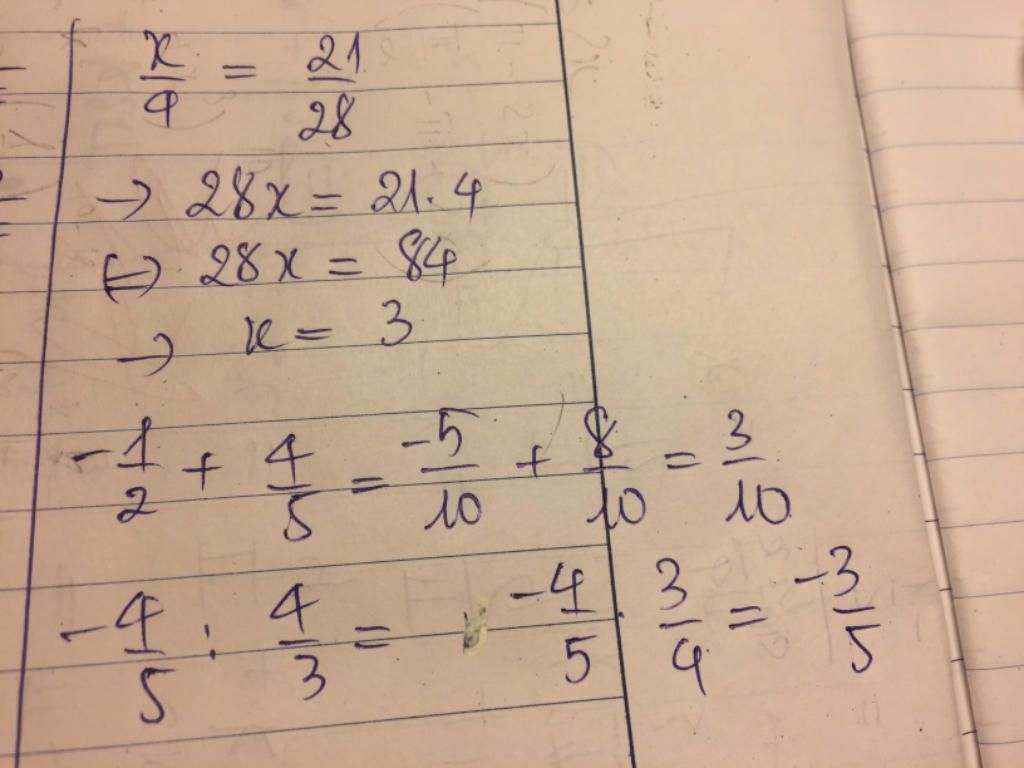 x/4 = 21/28
→ 28x = 21.4
⇔ 28x = 84
→ x = 3
-1/2 + 4/5 = -5/10 + 8/10 = 3/10
-4/5 : 4/3 = -4/5 . 3/4 = -3/5